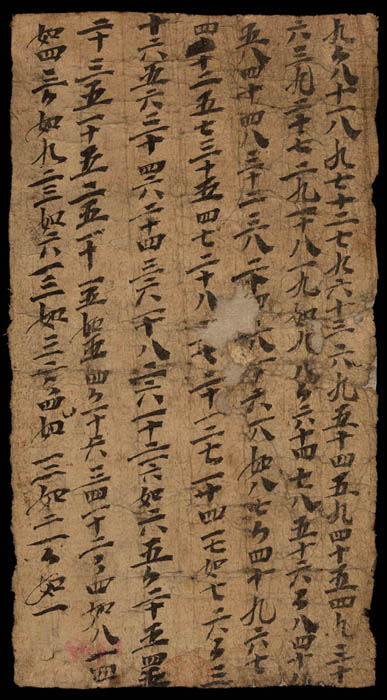 九々八十一八九七十二七九六十三六九五十四五九四十五四九三十
六三九二十七二九一十八一九如九八々六十四七八五十六六八四十八
五八四十四八三十二三八二十四八一十六一八如八七々四十九六七
四十二五七三十五四七二十八七二十一二七一十四一七如七六々三
十六五六三十四六二十四三六一十八二六一十二一六如六五々二十五四五
二十三五一十五二五一十一五如五四々一十六三四一十二二四如八一四
如四三々如九二三如六一三如三二々如四一二如二一々如一